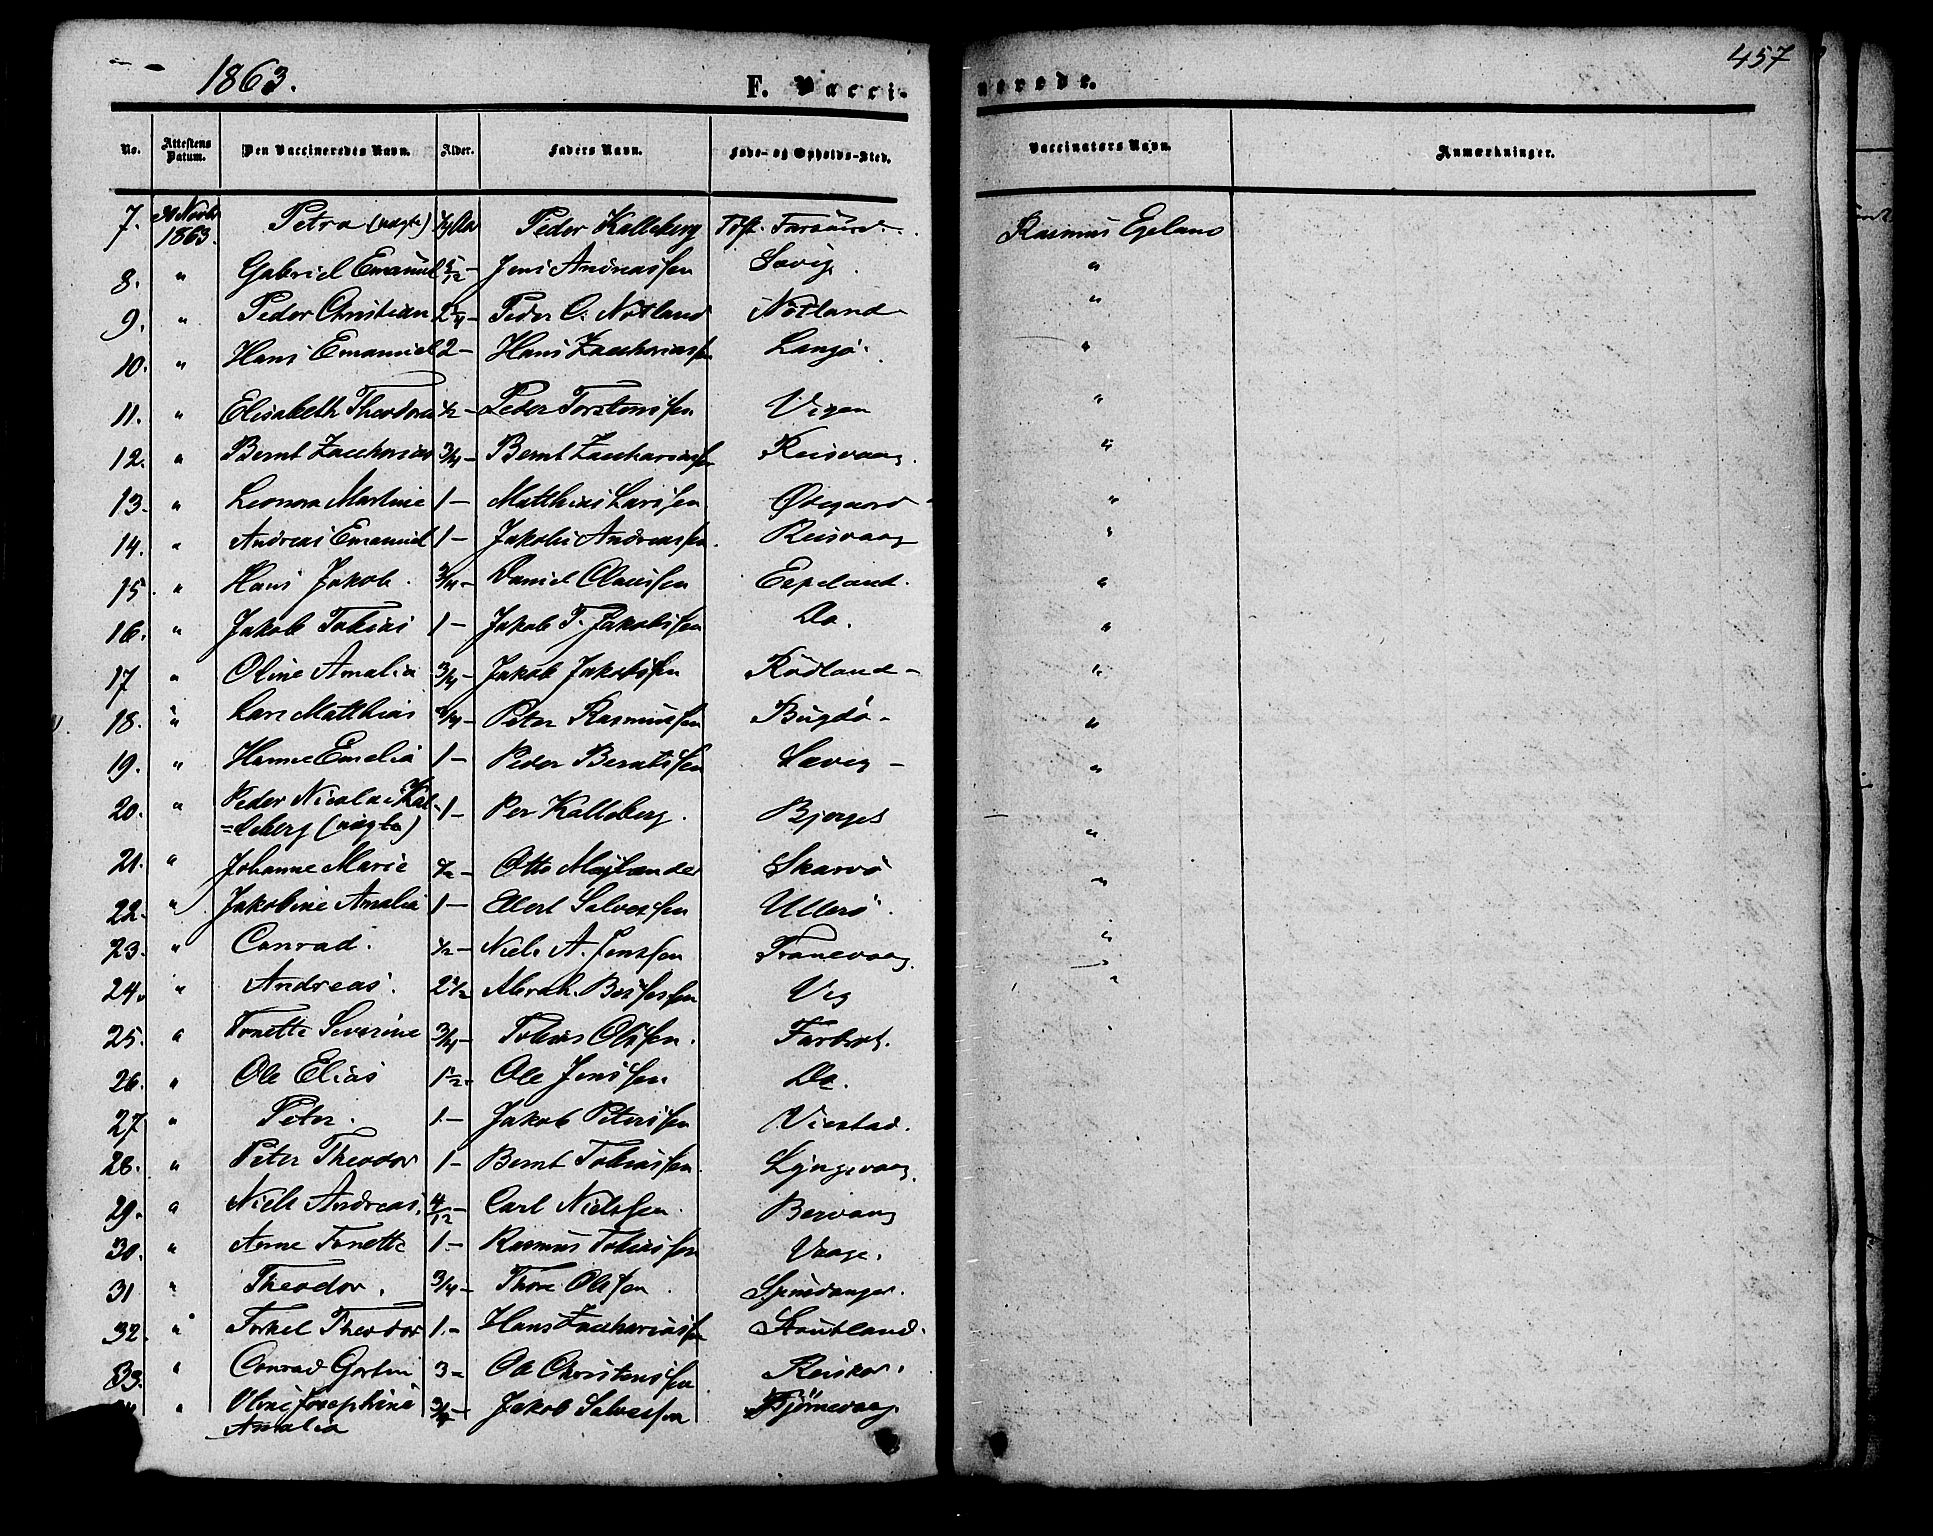 1863.
F. Vacci-
nerede.
457
No.
Attestens Datum.
Den Vaccineredes Navn.
Alder.
Faders Navn.
Føde- og Opholds-Sted.
Vaccinators Navn.
Anmærkninger.
7. Novbr 1863. Petra (uægte) Peder Kalleberg Farsund. Rasmus Egeland
8. " Gabriel Emanuel 5/12 - Jens Andreassen Sævig. "
9. " Peder Christian 2 1/4 - Peder O. Nøtland Nøtland "
10. " Hans Emanuel 2 - Hans Zacchariassen Langø. "
11. " Elisabeth Theodora 1/2 - Peder Torstenssen Vigen "
12. " Bernt Zaccharias 3/4 - Bernt Zacchariassen Reisvaag. "
13. " Leonora Martine 1 - Matthias Larssen Østgaard "
14. " Andreas Emanuel 1 - Jakob Andreassen. Reisvaag "
15. " Hans Jakob. 3/4 - Daniel Claussen Espeland. "
16. " Jakob Tobias 1 - Jakob T. Jakobssen Do. "
17 " Oline Amalia 3/4 - Jakob Jakobssen Rødland - "
18. " Lars Matthias 3/4 - Peter Rasmussen Bugdø - "
19. " Hanne Emelia 1 - Peder Berntssen Sævig - "
20. " Peder Nicolai Kal-
=leberg (uægte) 1 - Per Kalleberg. Bjerges "
21. " Johanne Marie 1/2 - Otto Mejlænder Skarvø "
22. " Jakobine Amalia 1 - Elert Salvessen Ullerø. "
23. " Conrad. 1/2 - Niels A. Jenssen Tranevaag. "
24. " Andreas. 2 1/2 Abrah. Berfessen Vig "
25. " Tonette Severine 3/4 Tobias Olssen. Farbrot.
26. " Ole Elias 1 1/2 - Ole Jenssen Do.
27 " Peter. 1. - Jakob Peterssen Viestad.
28. " Peter Theodor 1 - Bernt Tobiassen. Lyngsvaag.
29. " Niels Andreas. 4/12 - Carl Nielssen. Bervaag
30. " Anne Tonette 1. - Rasmus Tobiassen Vaage.
31 " Theodor. 3/4 - Thore Olssen. Spindanger.
32. " Torkel Theodor 1. - Hans Zacchariassen Stoutland.
33. " Conrad 3 - Ole Christenssen Reisker.
" Oline Josephine
Amalia 3/4 - Jakob Salvessen Fjørnevaag.